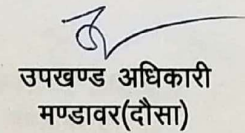 उपखण्ड अधिकारी
मण्डावर(दौसा)